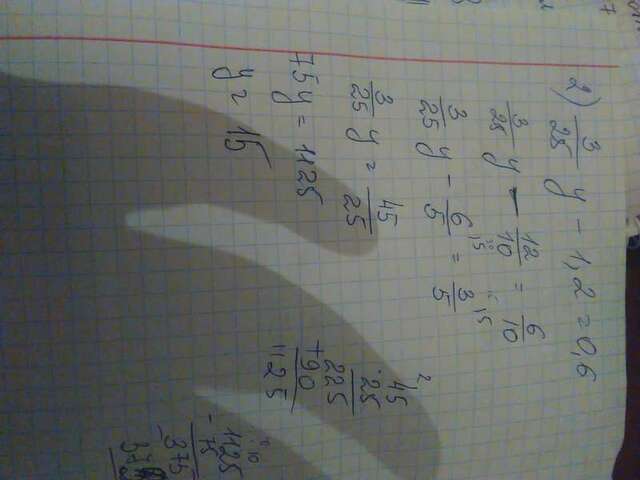 2) 3/25 y - 1,2 = 0,6
3/25 y - 12/10 = 6/10
3/25 y - 6/5 = 3/5
3/25 y = 45/25
75y = 1125
y = 15
45
· 25
225
+ 90
1125
- 1125
75
- 375